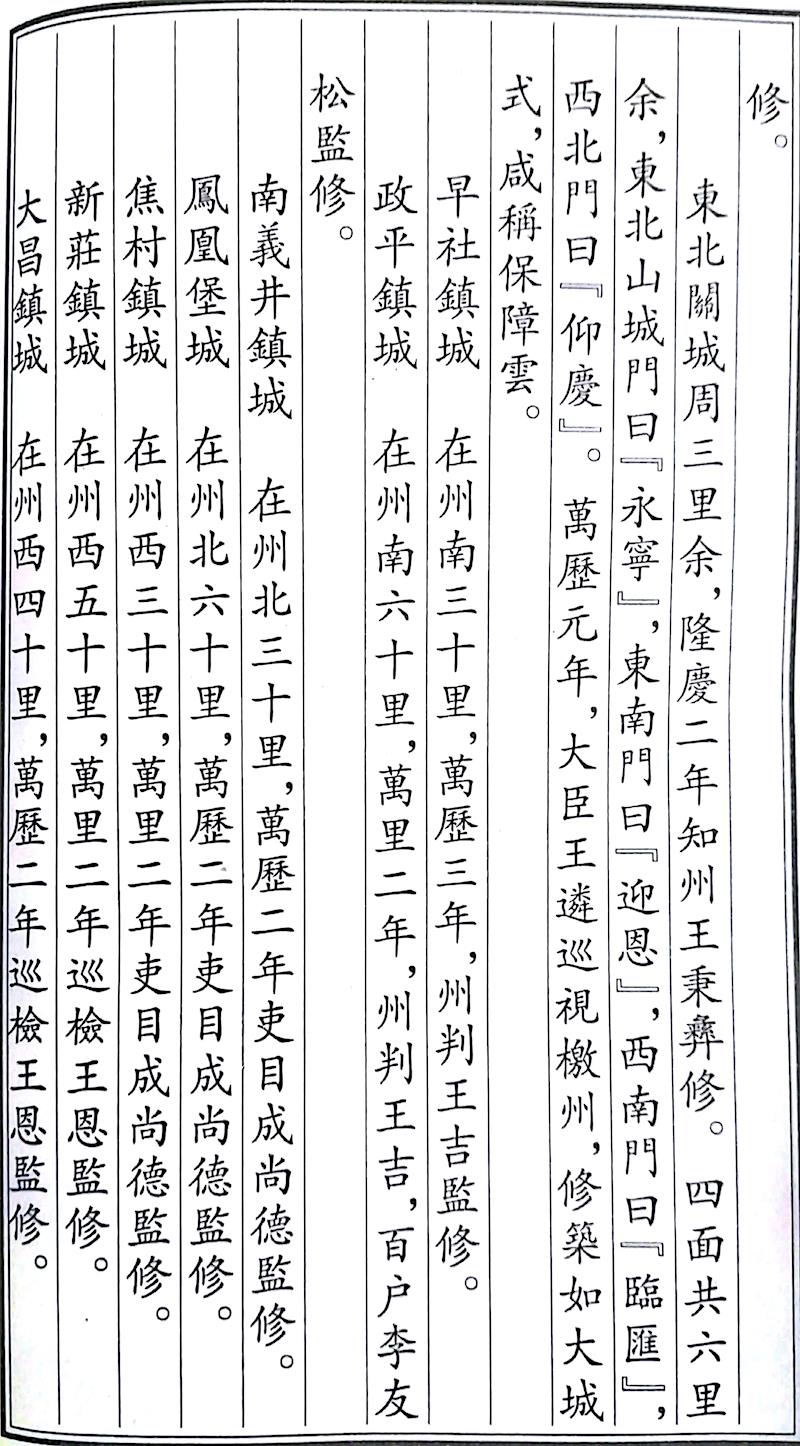 修。
東北關城周三里余，隆慶二年知州王秉彝修。四面共六里
余，東北山城門曰『永寧』，東南門曰『迎恩』，西南門曰『臨匯』，
西北門曰『仰慶』。萬歷元年，大臣王遴巡視檄州，修築如大城
式，咸稱保障雲。
早社鎮城　在州南三十里，萬歷三年，州判王吉監修。
政平鎮城　在州南六十里，萬里二年，州判王吉，百户李友
松監修。
南義井鎮城　在州北三十里，萬歷二年吏目成尚德監修。
鳳凰堡城　在州北六十里，萬歷二年吏目成尚德監修。
焦村鎮城　在州西三十里，萬里二年吏目成尚德監修。
新莊鎮城　在州西五十里，萬里二年巡檢王恩監修。
大昌鎮城　在州西四十里，萬歷二年巡檢王恩監修。